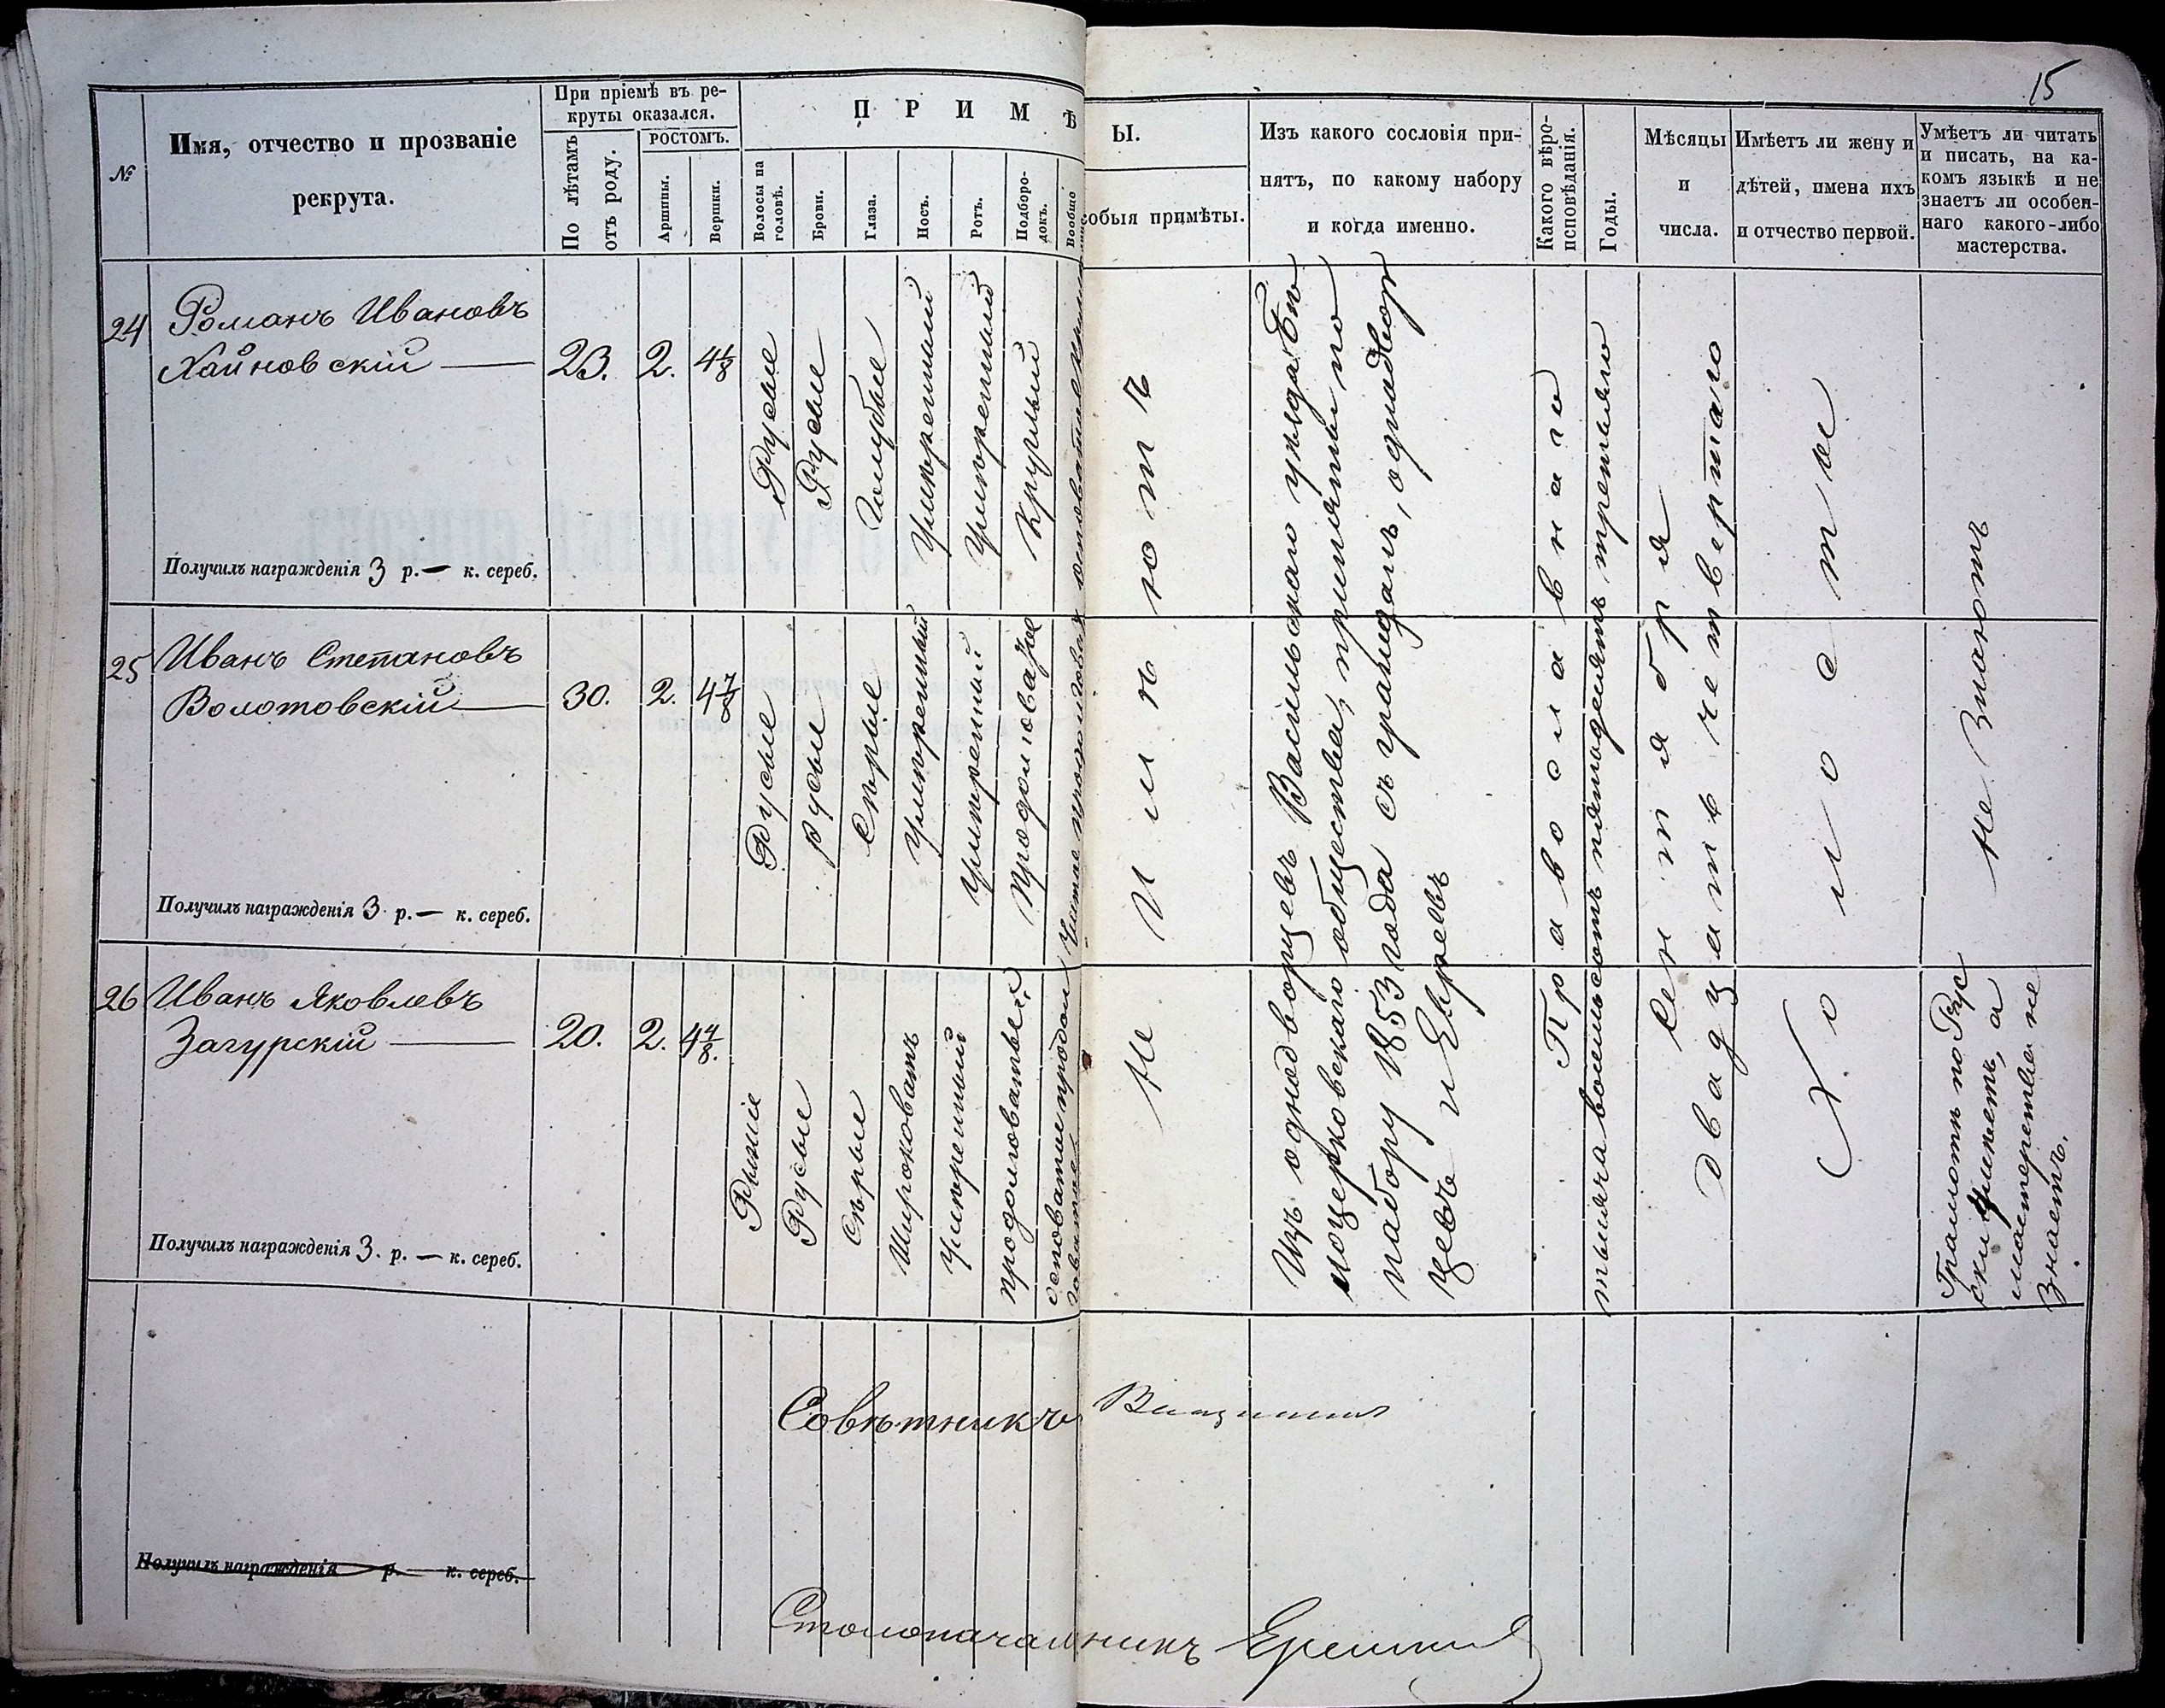 15
№
Имя, отчество и прозваніе
рекрута.
При пріемѣ въ ре-
круты оказался.
По лѣтамъ
отъ роду.
РОСТОМЪ.
Аршины.
Вершки.
П Р И М Ѣ
Волосы на
головѣ.
Брови.
Глаза.
Носъ.
Ротъ.
Подборо-
докъ.
Вообще
Ы.
собыя примѣты.
Изъ какого сословія при-
нятъ, по какому набору
и когда именно.
Какого вѣро-
исповѣданія.
Годы.
Мѣсяцы
и
числа.
Имѣетъ ли жену и
дѣтей, имена ихъ
и отчество первой.
Умѣетъ ли читать
и писать, на ка-
комъ языкѣ и не
знаетъ ли особен-
наго какого-либо
мастерства.
24
Романъ Ивановъ
Хайновскій
23.
2.
4 1/8
Русые
Русые
Голубые
Умѣренный
Умѣренный
Круглый
Получилъ награжденія 3 р. — к. сереб.
25
Иванъ Степановъ
Волотовскій
30.
2.
4 7/8
Русые
Русые
Сѣрые
Умѣренный
Умѣренный
Продолгова
Чистое
Получилъ награжденія 3 р. — к. сереб.
26
Иванъ Яковлевъ
Загурскій
20.
2.
4 4/8.
Рыжіе
Русые
Сѣрые
Широковатъ
Умѣренный
продолговатый
осповатое продол
говатое
Получилъ награжденія 3. р. — к. сереб.
Не имѣютъ
Изъ однодворцевъ Васильскаго уѣзда Бѣ
лоцерковскаго общества, приняты по
набору 1853 года съ гражданъ, однодвор
цевъ и Евреевъ
Православнаго
тысяча восемьсотъ пятьдесятъ третьяго
Сентября
двадцать четвертаго
Холостые
Не знаютъ
Грамотѣ по Рус
ски умѣетъ, а
мастерства не
знаетъ.
Совѣтникъ
Получилъ награжденія р. — к. сереб.
Столоначальникъ